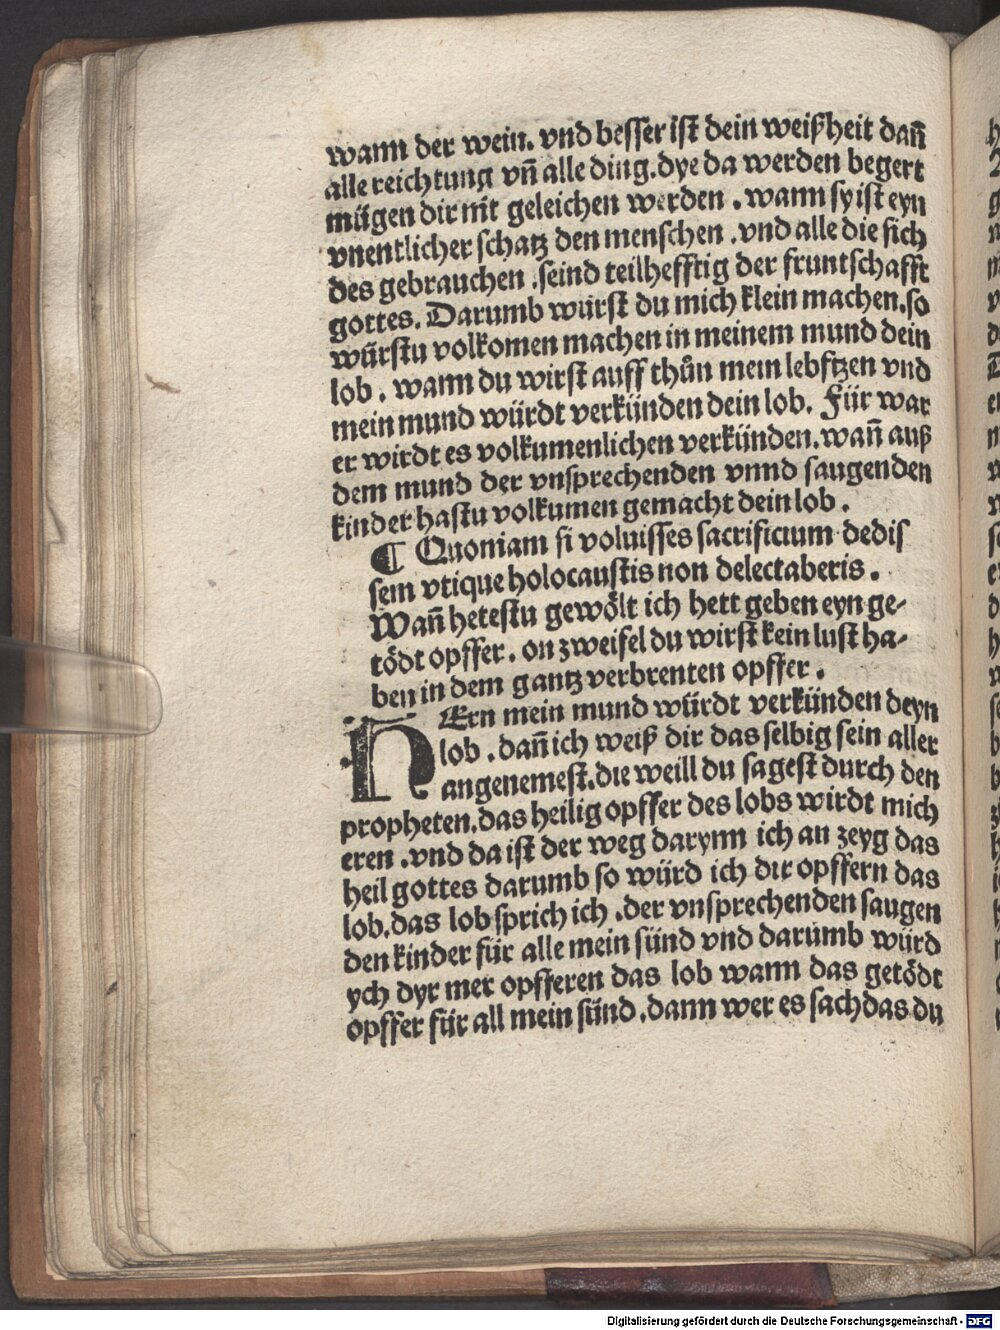 wann der wein. vnd besser ist dein weißheit dañ
alle reichtung vñ alle ding. dye da werden begert
mügen dir nit geleichen werden . wann sy ist eyn
vnentlicher schatz den menschen . vnd alle die sich
des gebrauchen . seind teilhefftig der fruntschafft
gottes. Darumb würst du mich klein machen. so
würstu volkomen machen in meinem mund dein
lob . wann du wirst auff thůn mein lebftzen vnd
mein mund würdt verkünden dein lob. Für war
er wirdt es volkumenlichen verkünden. wañ auß
dem mund der vnsprechenden vnnd saugenden
kinder hastu volkumen gemacht dein lob .
¶ Quoniam si voluisses sacrificium dedis
sem vtique holocaustis non delectaberis .
Wañ hetestu gewölt ich hett geben eyn ge-
tödt opffer . on zweifel du wirst kein lust ha-
ben in dem gantz verbrenten opffer .
HErn mein mund würdt verkünden deyn
lob . dañ ich weiß dir das selbig sein aller
angenemest. die weill du sagest durch den
propheten. das heilig opffer des lobs wirdt mich
eren . vnd da ist der weg darynn ich an zeyg das
heil gottes darumb so würd ich dir opffern das
lob. das lob sprich ich . der vnsprechenden saugen
den kinder für alle mein sünd vnd darumb würd
ych dyr mer opfferen das lob wann das getödt
opffer für all mein sünd . dann wer es sach das du
Digitalisierung gefördert durch die Deutsche Forschungsgemeinschaft - DFG